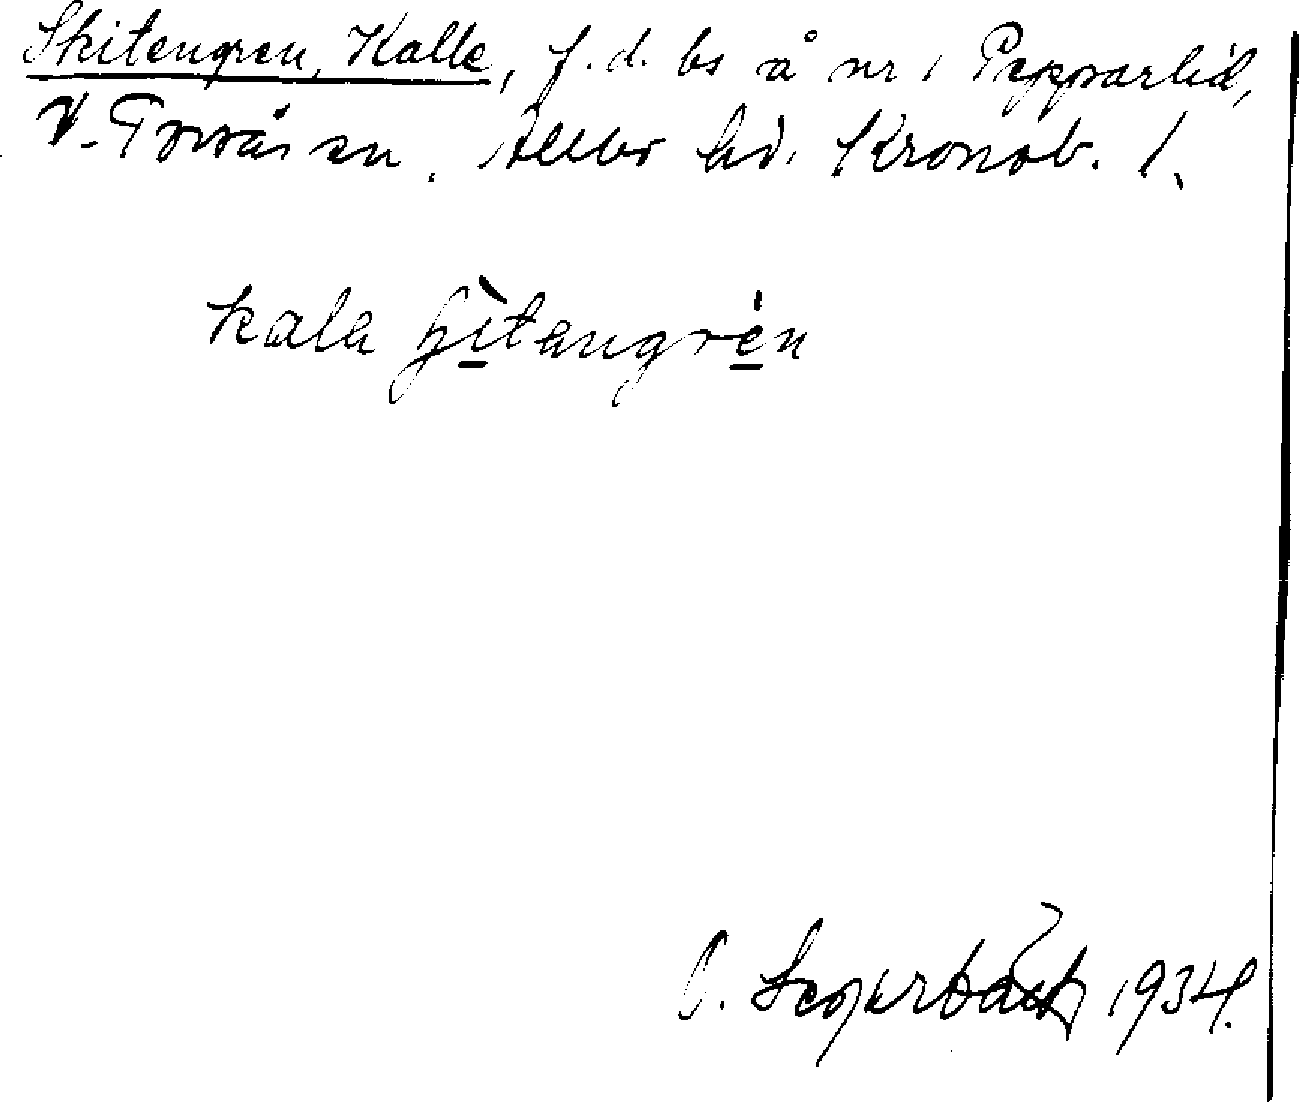 Skitengren, Kalle, f. d. bs å nr 1 Pepparlid,
V. Torsås sn. Allbo hd. Kronob. l.
kala ʃìtangrén
O. Segerbäck 1934.